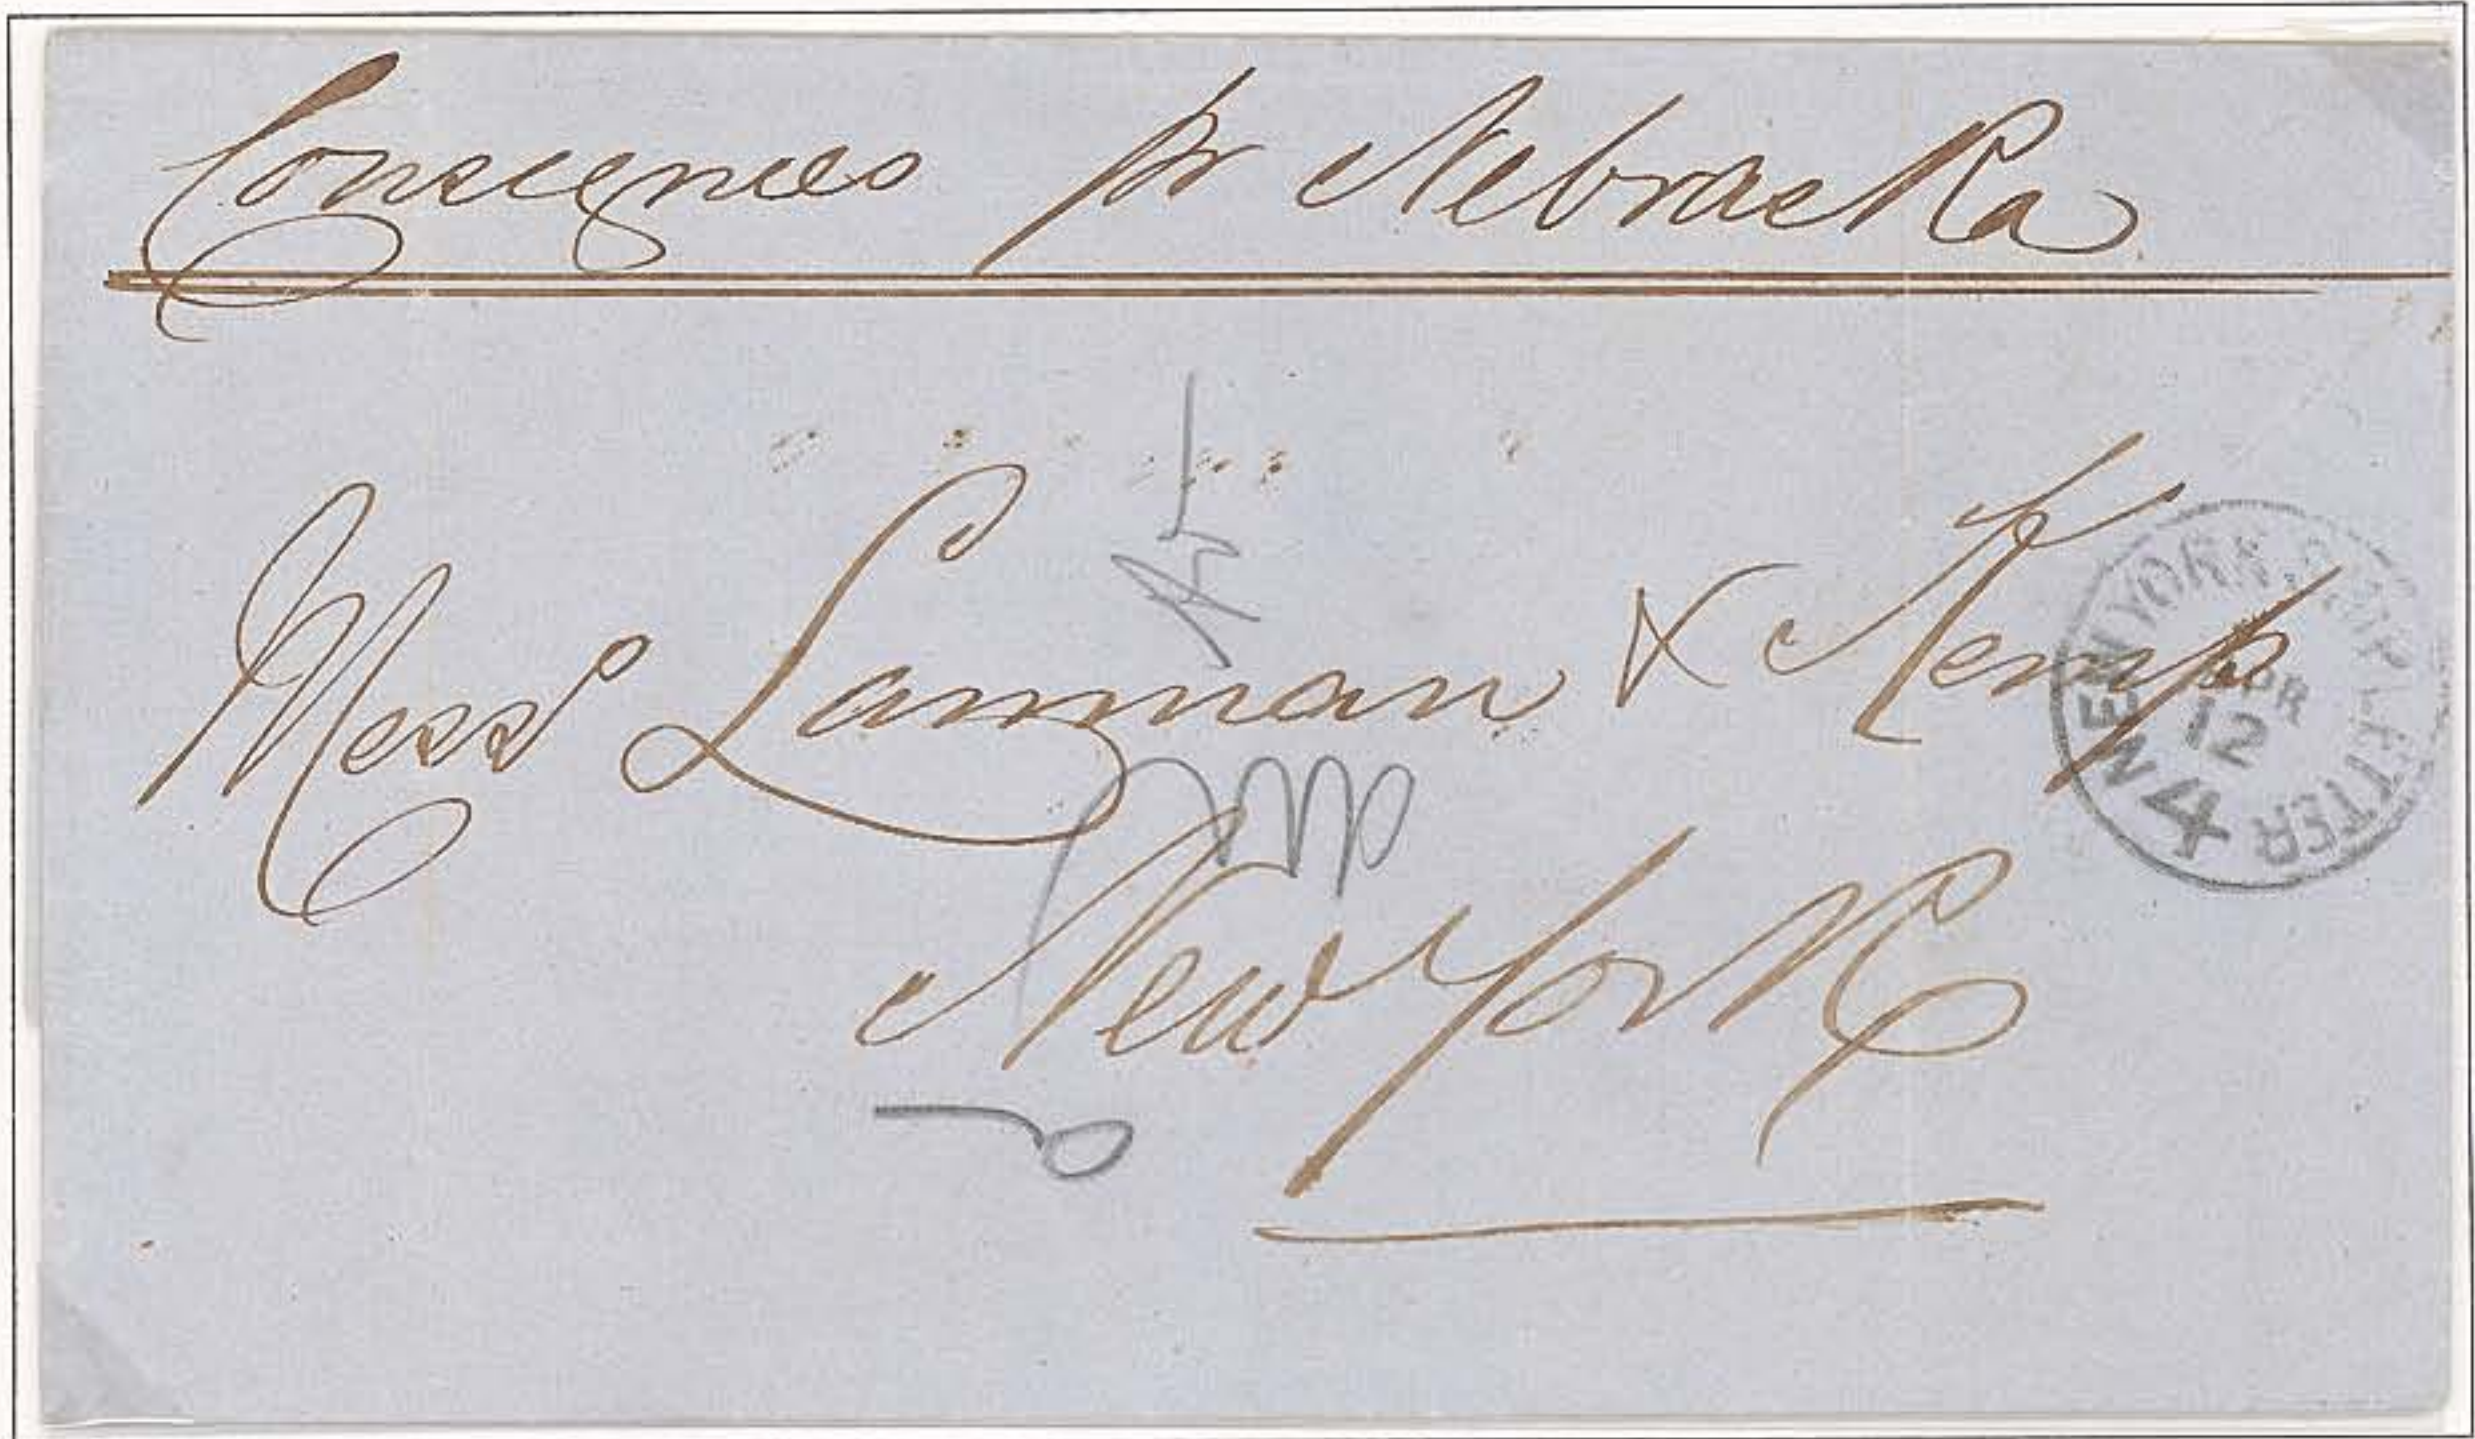 Consignees pr Nebraska
Mess Lanman & Kemp
New York
NEW YORK SHIP LETTER
APR
12
4